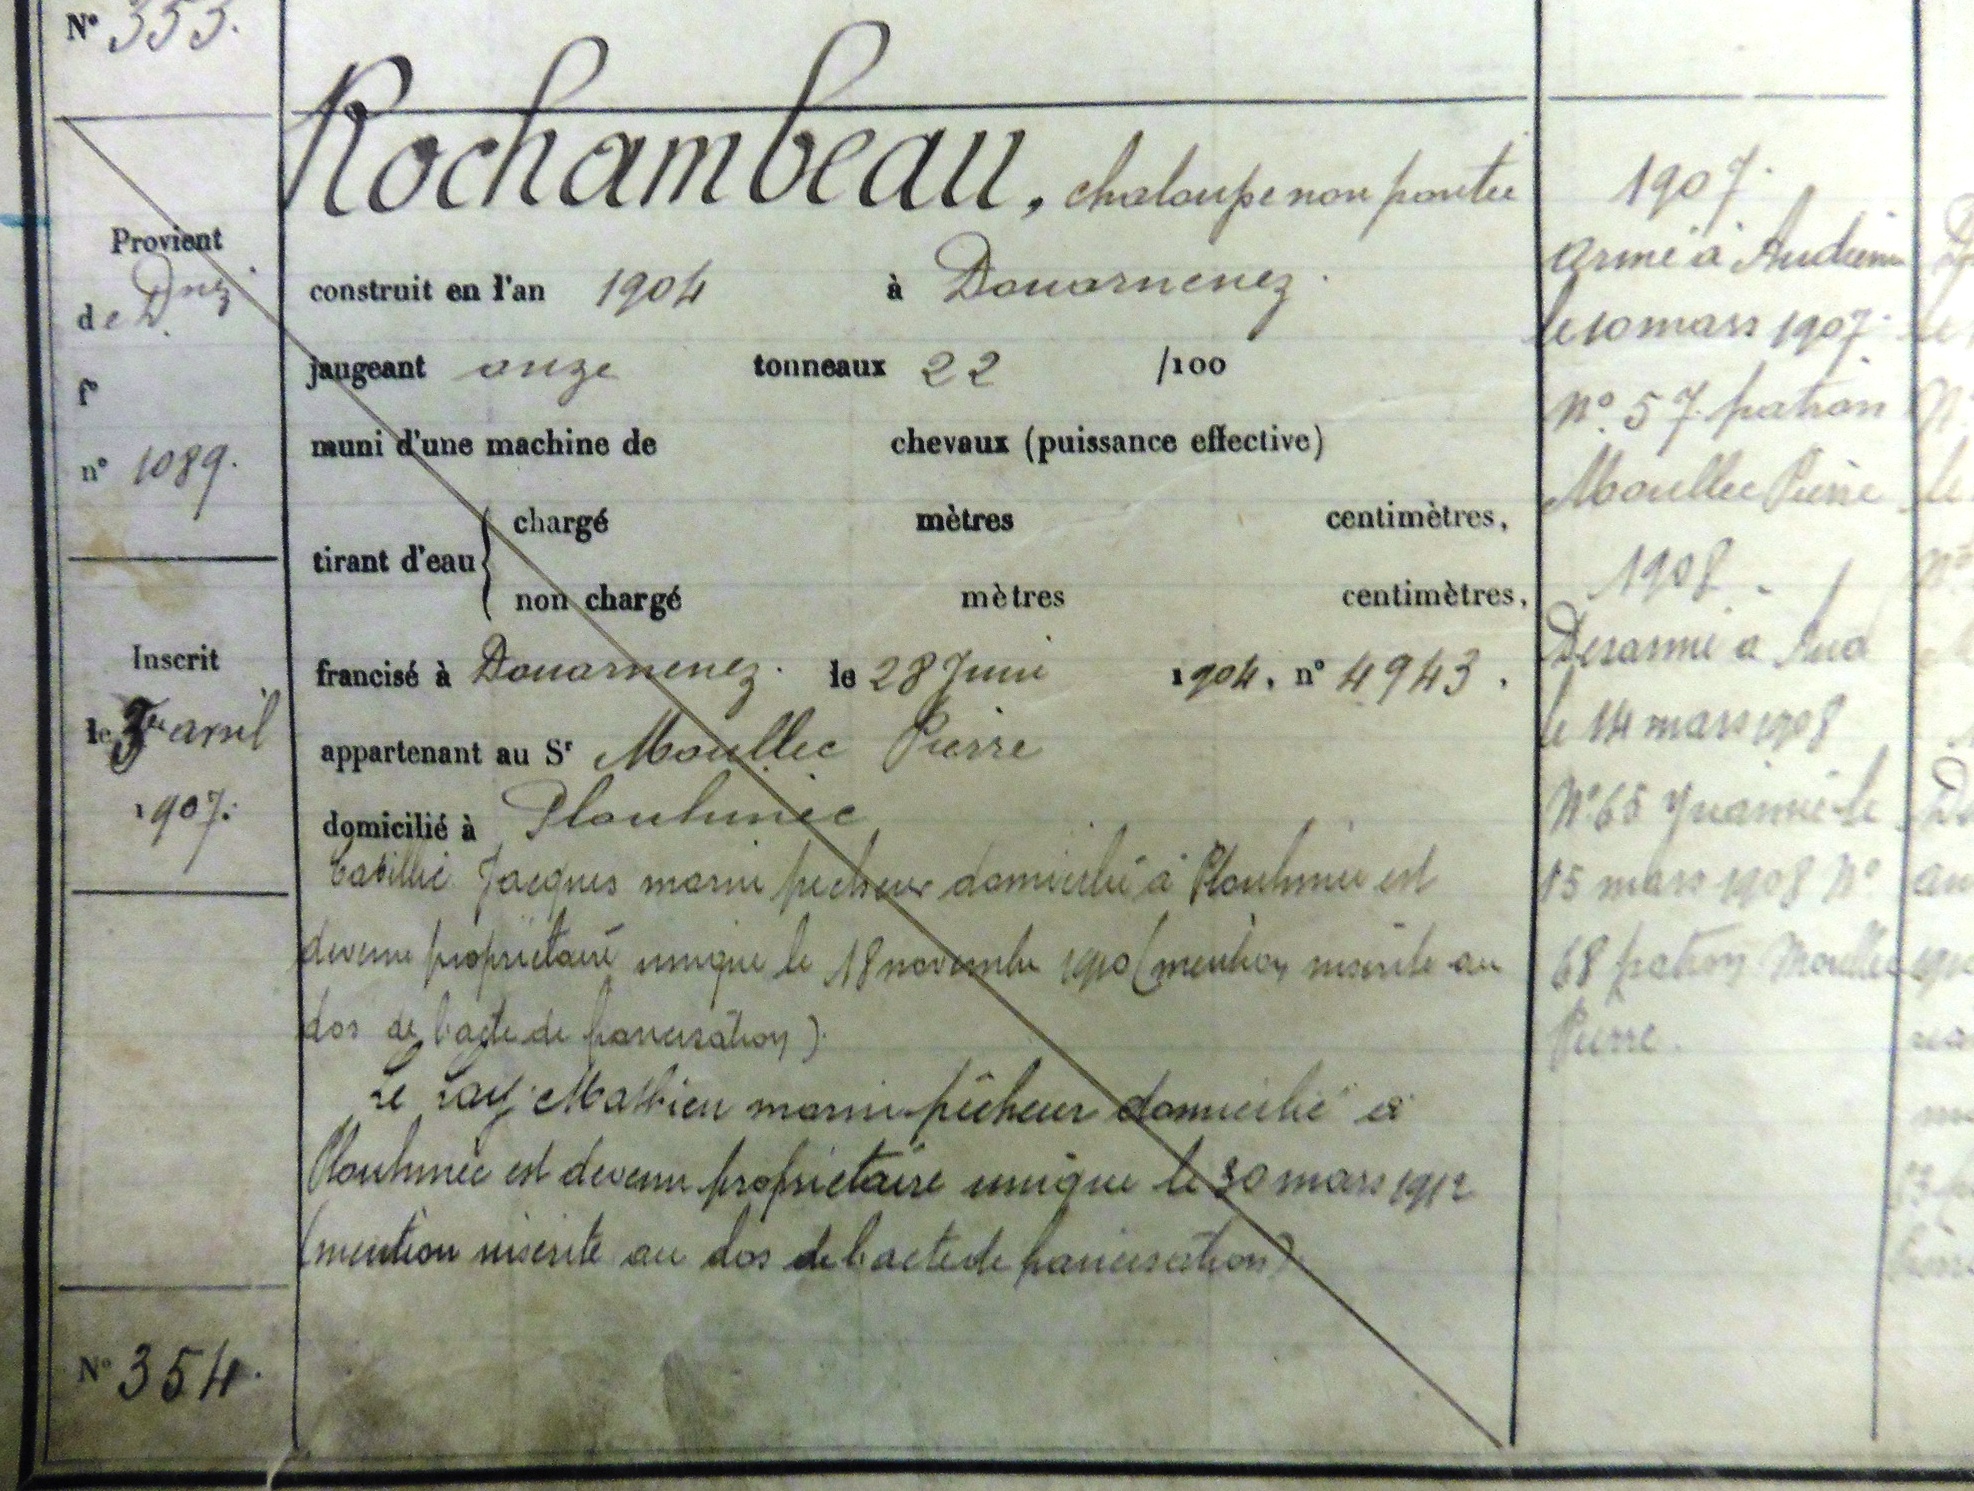 N° 353.
Provient
de Dnz
f°
n° 1089.
Inscrit
le 3 avril
1907.
N° 354.
Rochambeau, chaloupe non pontée
construit en l'an 1904 à Douarnenez.
jaugeant onze tonneaux 22 /100
muni d'une machine de chevaux (puissance effective)
tirant d'eau { chargé mètres centimètres,
non chargé mètres centimètres,
francisé à Douarnenez. le 28 Juin 1904, n° 4943.
appartenant au Sr Moullec Pierre
domicilié à Plouhinec
Jacques marin pêcheur domicilié à Plouhinec est
devenu propriétaire unique le 18 novembre 1910 (mention inscrite au
dos de l'acte de francisation).
Le Lay Mathieu marin pêcheur domicilié à
Plouhinec est devenu propriétaire unique le 30 mars 1912
(mention inscrite au dos de l'acte de francisation)
1907.
armé à Audierne
le 10 mars 1907.
N° 57. patron
Moullec Pierre
1908
Desarmé à Aud
le 14 mars 1908
N° 65 le
15 mars 1908 N°
68 patron Moullec
Pierre.